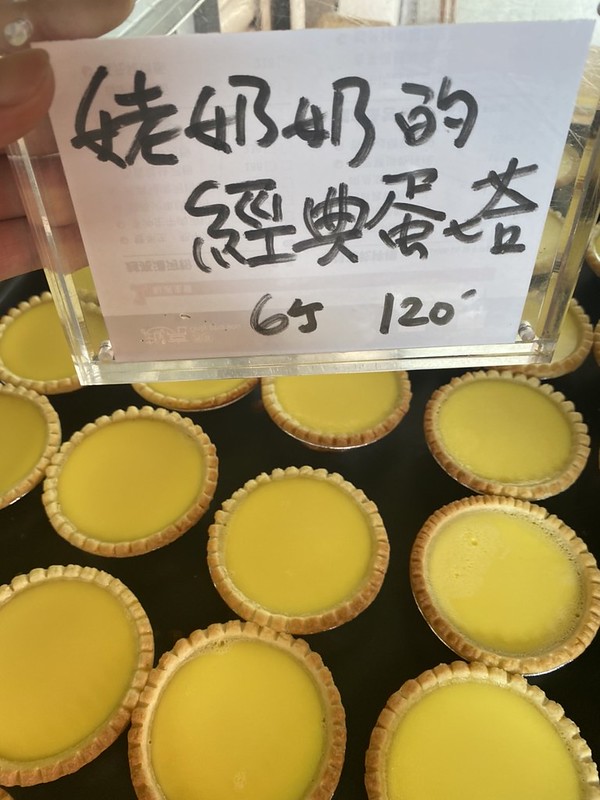 姥奶奶的
經典蛋塔
6ケ 120